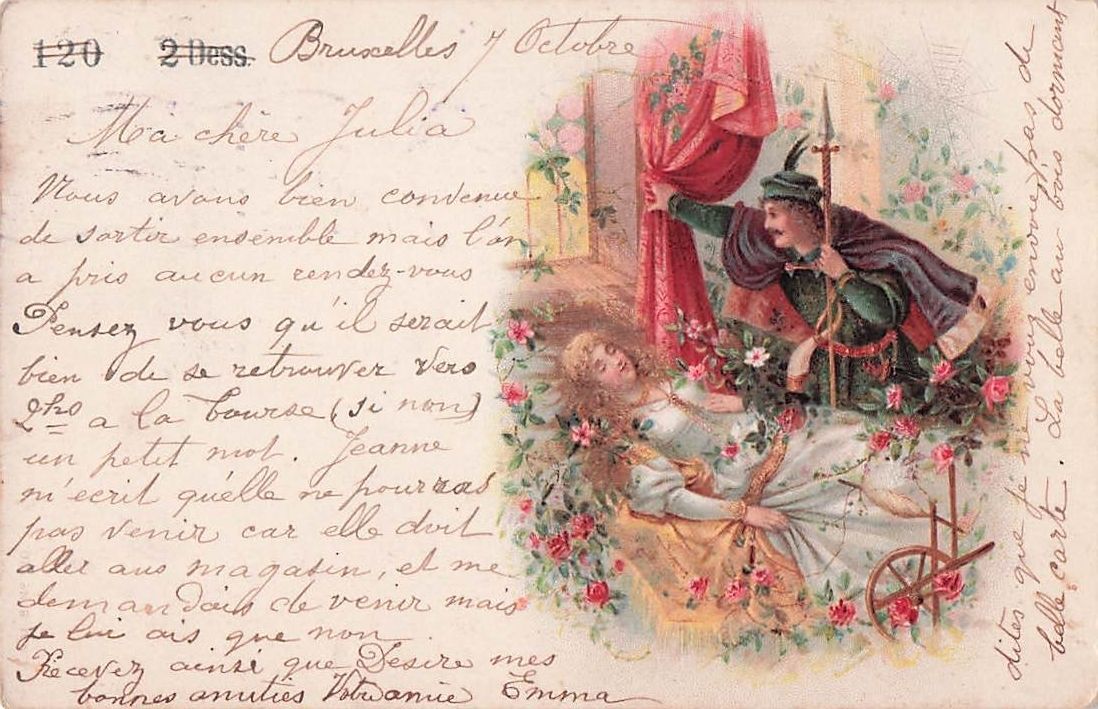 120 2 Dess. Bruxelles 7 Octobre
Ma chère Julia
Nous avons bien convenue
de sortir ensemble mais l'on
a pris aucun rendez-vous
Pensez vous qu'il serait
bien de se retrouver vers
2 hrs a la bourse (si non)
un petit mot. Jeanne
m'ecrit qu'elle ne pourras
pas venir car elle doit
aller aus magasin, et me
demandais de venir mais
je lui ais que non
Recevez ainsi que Desire mes
bonnes amitiés Votre amie Emma
dites que je ne vous envoie pas de
belle carte. La belle au bois dormant